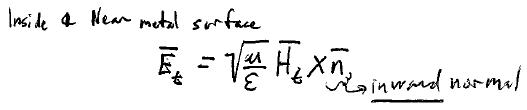 Inside & Near metal surface
E̅ₜ = √(μ/ε) H̅ₜ × n̅
inward normal